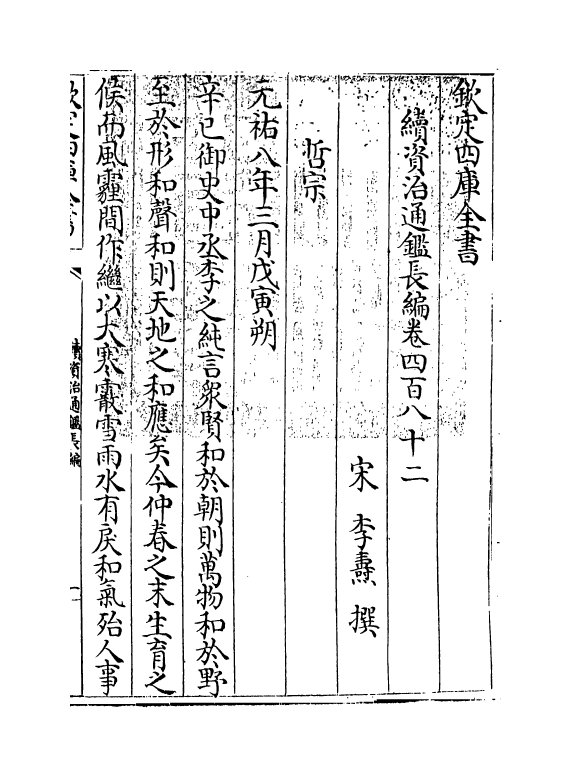 欽定四庫全書
續資治通鑑長編卷四百八十二
宋 李燾 撰
哲宗
元祐八年三月戊寅朔
辛巳御史中丞李之純言衆賢和於朝則萬物和於野
至於形和聲和則天地之和應矣今仲春之末生育之
候而風霾間作繼以大寒霰雪雨水有戾和氣殆人事
欽定四庫全書
續資治通鑑長編
一